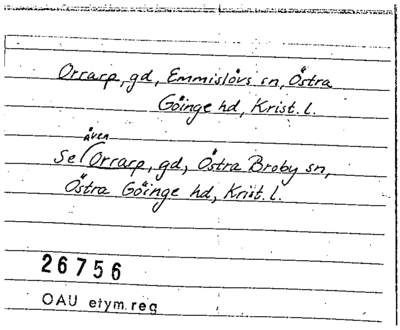 Orrarp, gd, Emmislövs sn, Östra
Göinge hd, Krist. l.
även
Se Orrarp, gd, Östra Broby sn,
Östra Göinge hd, Krist. l.
26756
OAU etym.reg